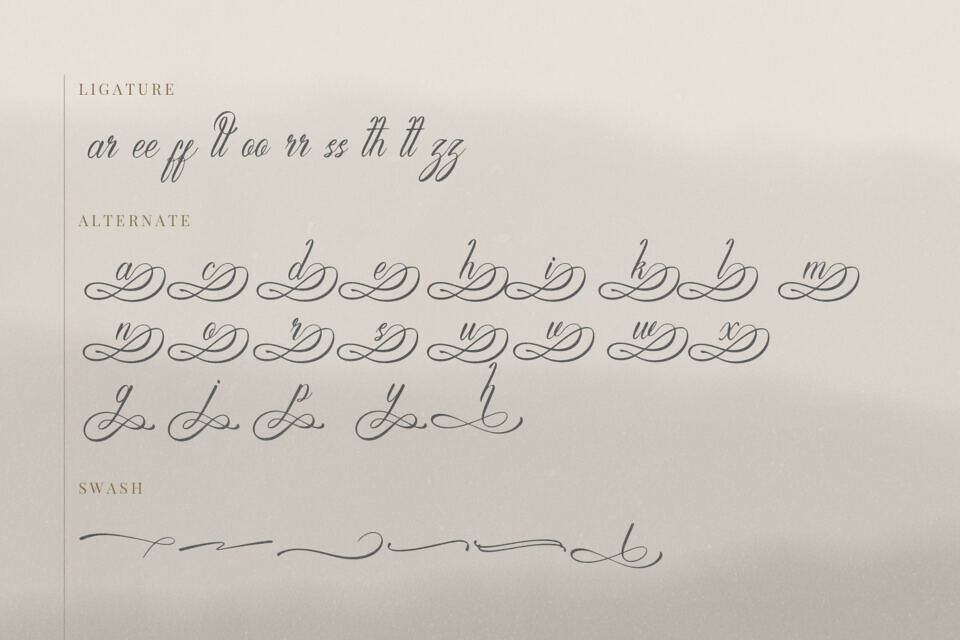 LIGATURE
ar ee ff ll oo rr ss th tt zz
ALTERNATE
a c d e h i k l m
n o r s u v w x
g j p y h
SWASH